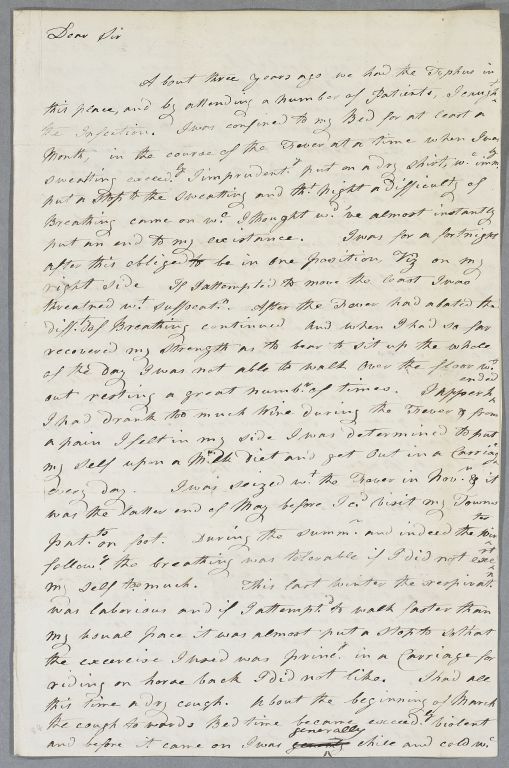 Dear Sir
About three years ago we had the Typhus in
this place, and by attending a number of Patients, I caugh-
the Infection. I was confined to my Bed for at least a
Month, in the course of the Fever at a time when I was
sweating exceed.ly I imprudent.ly put on a dry shirt, w.c imm.ly
put a stop to the sweating and th.t night a difficulty of
Breathing came on w.c I thought w.d 've almost instantly
put an end to my existance. I was for a fortnight
after this obliged to be in one position Viz on my
right side If I attempted to move the least I was
threatned w.t suffocat.n. After the Fever had abated the
diff.y of Breathing continued and when I had so far
recovered my strength as to bear to sit up the whole
of the day I was not able to walk over the floor w.t
out resting a great numb.r of times. I apperh-
ended
I had drank too much Wine during the Fever & from
a pain I felt in my side I was determined to put
my self upon a Milk Diet and get out in a Carriag.e
every day. I was seized w.t the Fever in Nov.r & it
was the latter end of May before I c.d visit my Town
pat.ts on foot. During the summ.r and indeed the win
ter
follow.g the breathing was tolerable if I did not exe
rt
my self too much. This last winter the respirat.n
was laborious and if I attempt.d to walk faster than
my usual pace it was almost put a stop to so that
the excercise I used was princ.y in a Carriage for
riding on horse back I did not like. I had all
this time a dry cough. About the beginning of March
the cough towards Bed time became exceed.ly violent
and before it came on I was generally chill and cold w.c